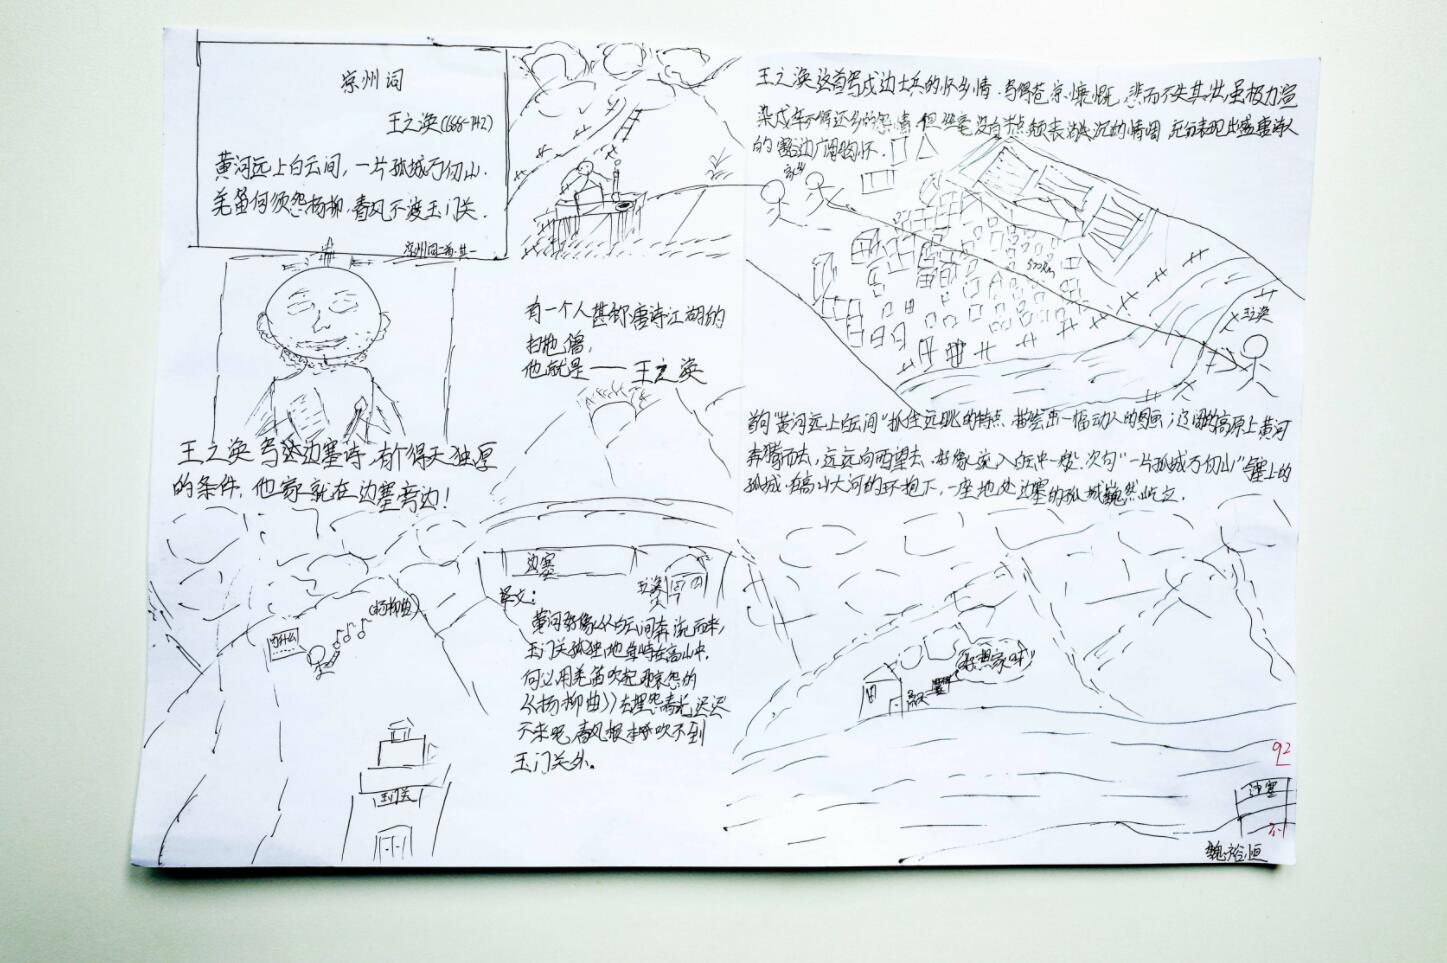 凉州词
王之涣(688-742)
黄河远上白云间，一片孤城万仞山.
羌笛何须怨杨柳，春风不渡玉门关.
凉州词二首·其一
王之涣写这边塞诗，有个得天独厚
的条件，他家就在边塞旁边！
有一个人堪称唐诗江湖的
扫地僧，
他就是——王之涣
王之涣这首写戍边士兵的怀乡情．写得苍凉慷慨，悲而不失其壮，虽极力渲
染戍卒不得还乡的怨情，但丝毫没有半点颓丧消沉的情调，充分表现出盛唐诗人
的豁达广阔胸怀．
王之涣
首句"黄河远上白云间"抓住远眺的特点，描绘出一幅动人的图画；辽阔的高原上黄河
奔腾而去，远远向西望去，好像流入白云中一般．次句"一片孤城万仞山"写塞上的
孤城．在高山大河的环抱下，一座地处边塞的孤城巍然屹立．
(杨柳曲)
为什么
玉门关
边塞
王之涣
译文：
黄河好像从白云间奔流而来，
玉门关孤独地耸峙在高山中．
何必用羌笛吹起那哀怨的
《杨柳曲》去埋怨春光迟迟
不来呢，春风根本吹不到
玉门关外。
"好想家呀"
92
边塞
魏裕恒